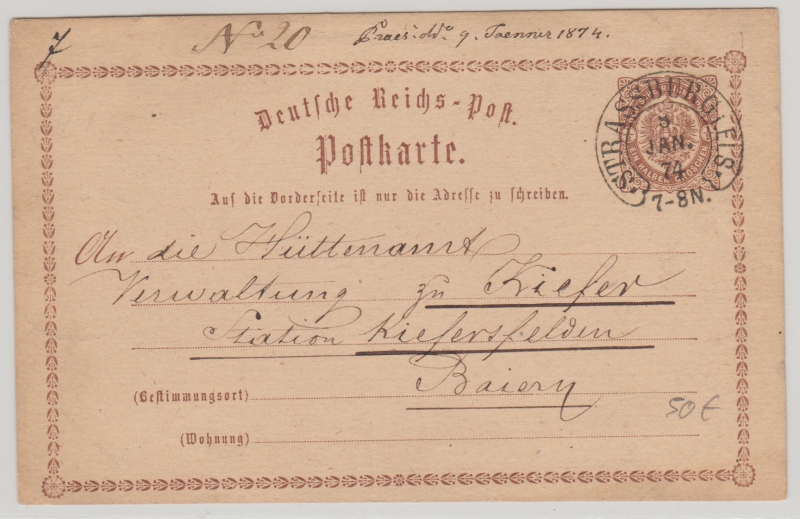 7 No 20 Praes. dd. 9. Jaenner 1874.
Deutsche Reichs-Post.
Postkarte.
Auf die Vorderseite ist nur die Adresse zu schreiben.
STRASSBURG i. ELS.
JAN.
74
7-8N.
An die Hüttenamt
Verwaltung zu Kiefer
Station Kiefersfelden
Baiern
(Bestimmungsort)
50€
(Wohnung)